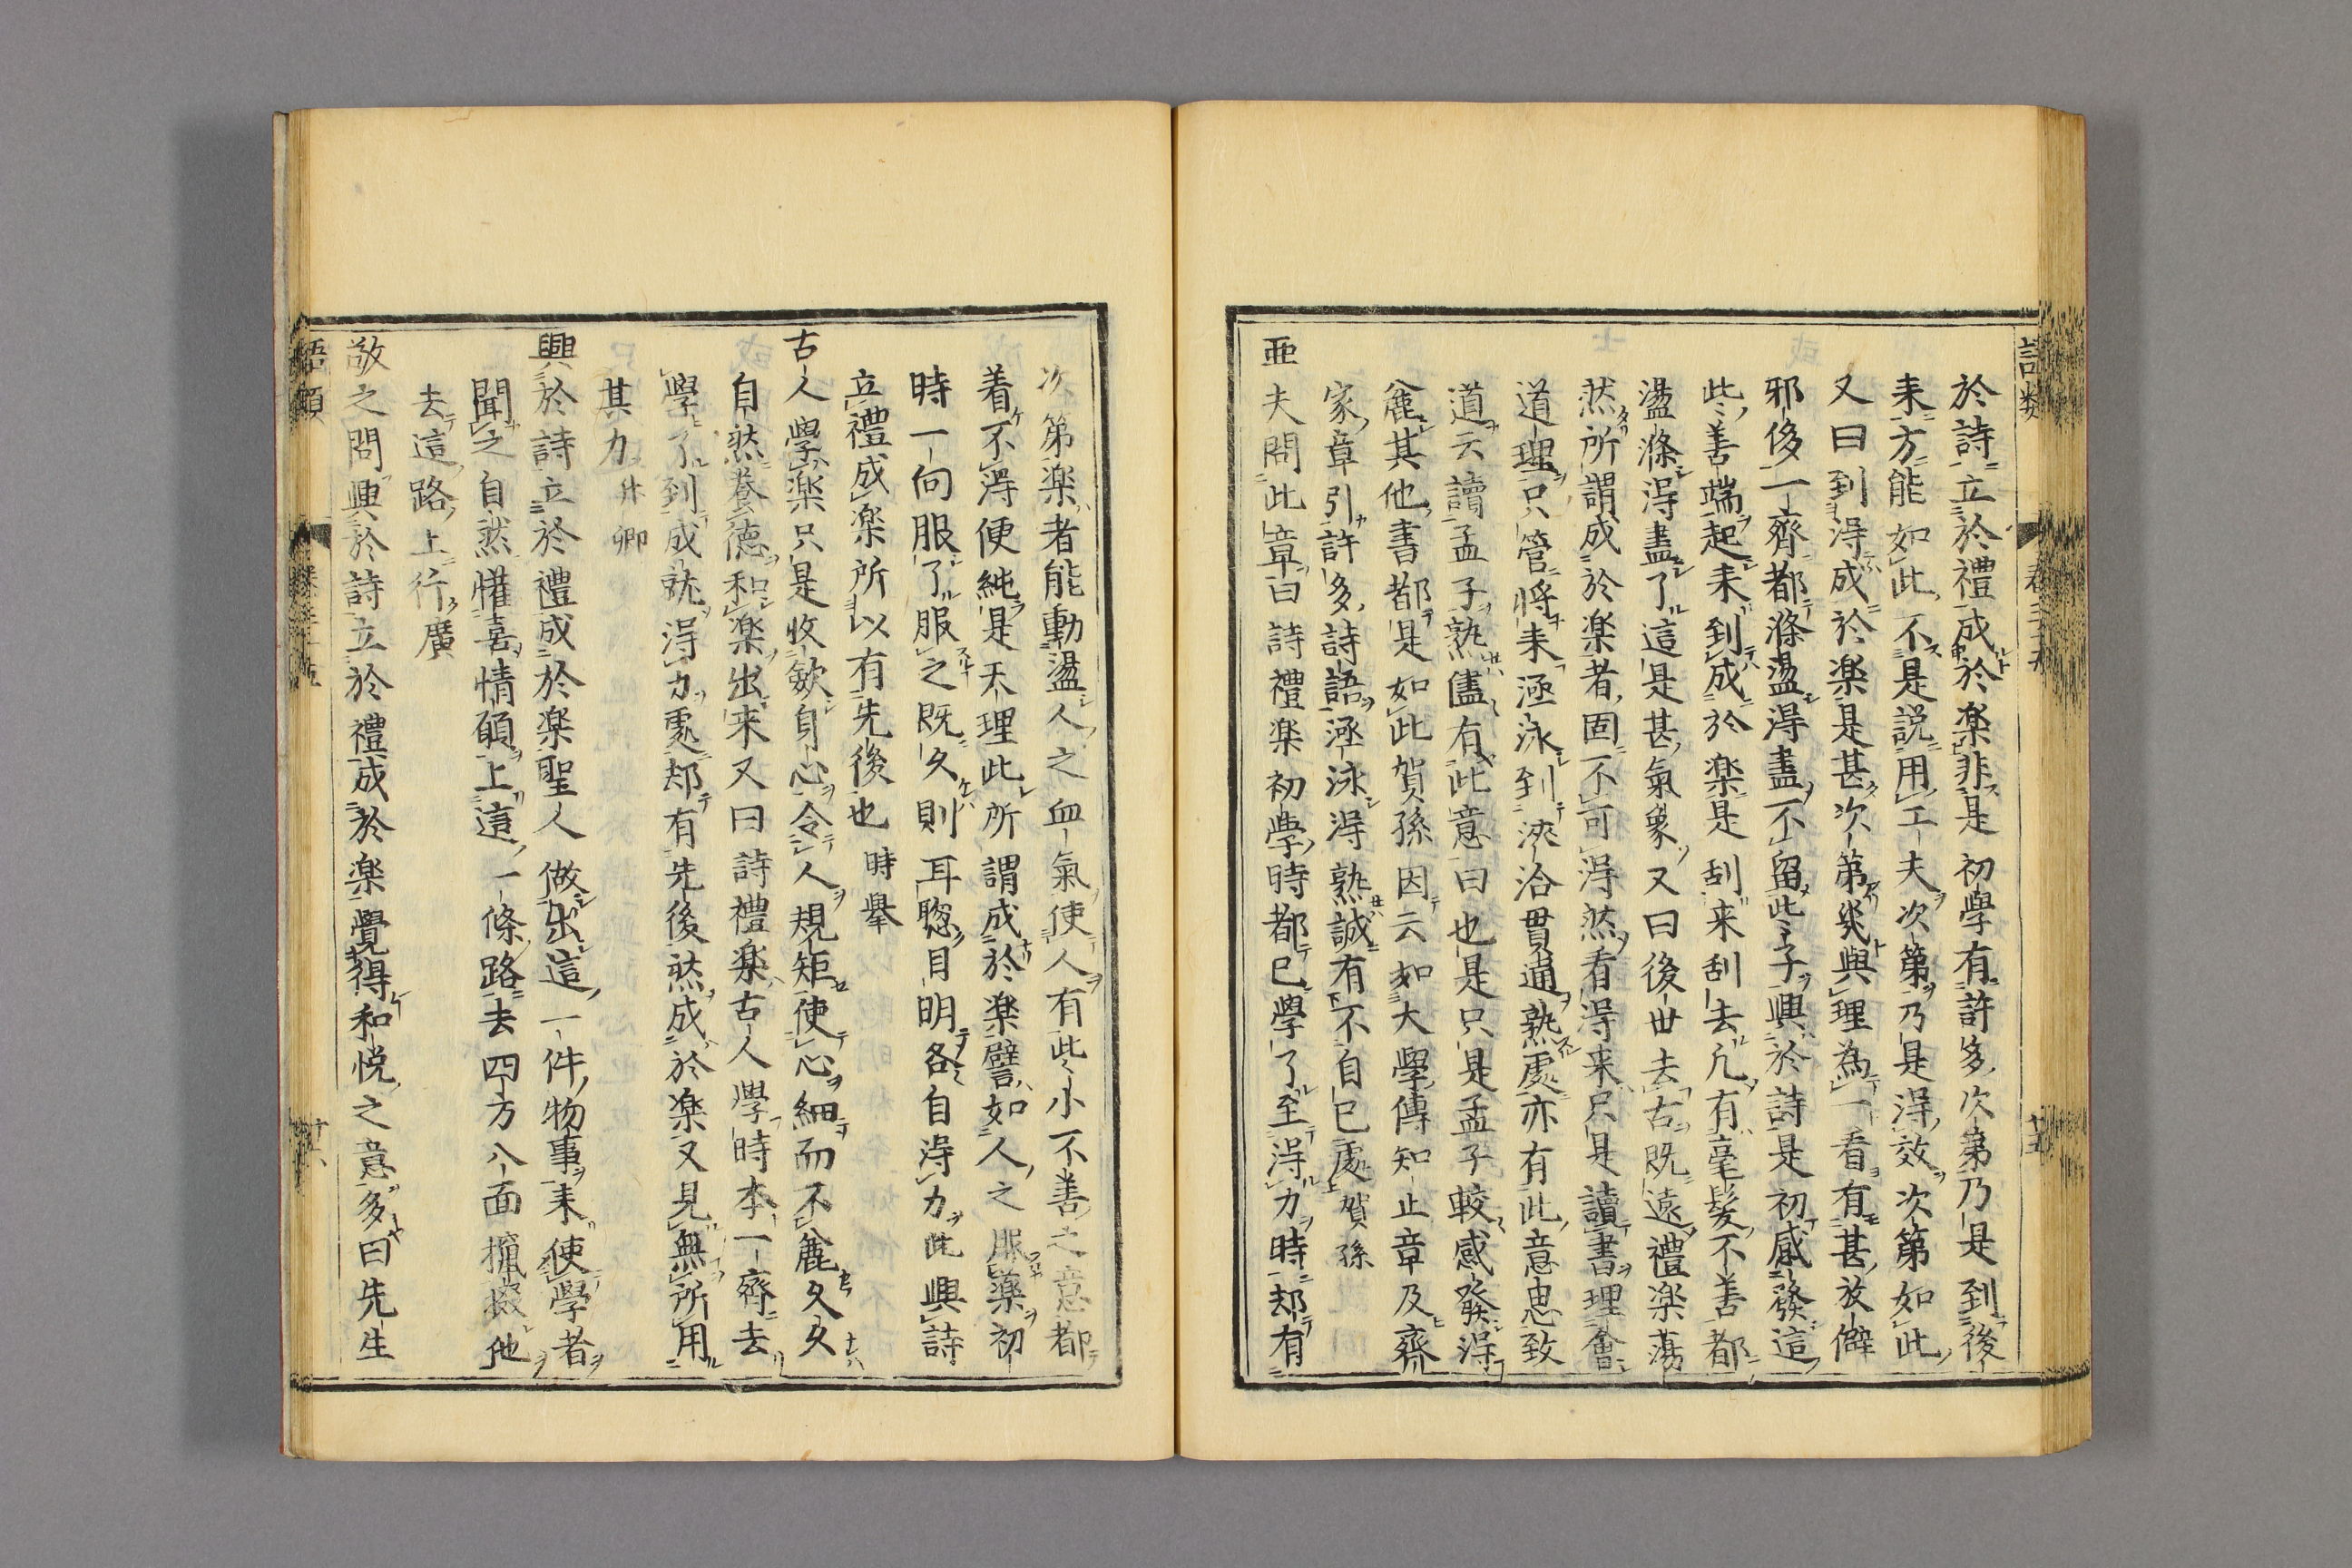 語類 卷三十五 十五
於詩立於禮成於楽非是初學有許多次第乃是到後
来方能如此不是説用工夫次第乃是得效次第如此
又曰到得成於楽是甚次第幾與理為一看有甚放僻
邪侈一齊都滌盪得盡不留些子興於詩是初感發這
些善端起来到成於楽是刮来刮去凢有毫髪不善都
盪滌得盡了這是甚氣象又曰後世去古既遠禮楽蕩
然所謂成於楽者固不可得然看得来只是讀書理會
道理只管将来涵泳到浹洽貫通熟處亦有此意思致
道云讀孟子熟儘有此意曰也是只是孟子較感發得
麄其他書都是如此賀孫因云如大學傳知止章及齊
家章引許多詩語涵泳得熟誠有不自已處賀孫
亜夫問此章曰詩禮楽初學時都已學了至得力時却有
次第楽者能動盪人之血氣使人有些小不善之意都
着不得便純是天理此所謂成於楽譬如人之服薬初
時一向服了服之既久則耳聦目明各自得力此興詩
立禮成楽所以有先後也時舉
古人學楽只是收歛身心令人規矩使心細而不麄久久
自然養德和楽出来又曰詩禮楽古人學時本一齊去
學了到成就得力處却有先後然成於楽又見無所用
其力升卿
興於詩立於禮成於楽聖人做出這一件物事来使學者
聞之自然懽喜情願上這一條路去四方八面攛掇他
去這路上行廣
敬之問興於詩立於禮成於楽覺得和悅之意多曰先生
語類 卷三十五 十六